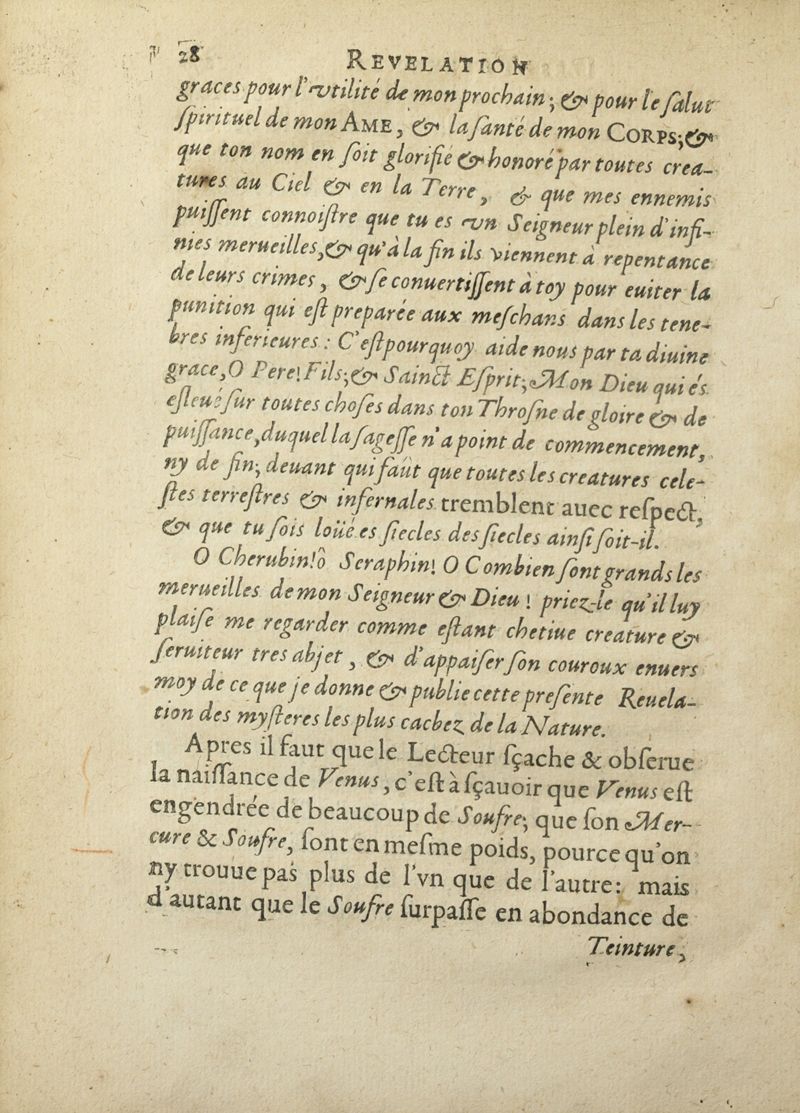 28 REVELATION
graces pour l'vtilité de mon prochain; & pour le ſalut
ſpirituel de mon AME, & la ſanté de mon CORPS; &
que ton nom en ſoit glorifié & honoré par toutes crea-
tures au Ciel & en la Terre, & que mes ennemis
puiſſent connoiſtre que tu es vn Seigneur plein d'infi-
nies merueilles, & qu'à la fin ils viennent à repentance
de leurs crimes, & ſe conuertiſſent à toy pour euiter la
punition qui eſt preparée aux meſchans dans les tene-
bres inferieures: C'eſt pourquoy aide nous par ta diuine
grace, O Pere! Fils; & Sainct Eſprit; Mon Dieu qui és
eſleué ſur toutes choſes dans ton Throſne de gloire & de
puiſſance, duquel la ſageſſe n'a point de commencement,
ny de fin; deuant qui faut que toutes les creatures cele-
ſtes terreſtres & infernales tremblent auec reſpect,
& que tu ſois loüé es ſiecles des ſiecles ainſi ſoit-il.
O Cherubin! ô Seraphin! O Combien ſont grands les
merueilles de mon Seigneur & Dieu! priez-le qu'il luy
plaiſe me regarder comme eſtant chetiue creature &
ſeruiteur tres abjet, & d'appaiſer ſon couroux enuers
moy de ce que je donne & publie cette preſente Reuela-
tion des myſteres les plus cachez de la Nature.
Apres il faut que le Lecteur ſçache & obſerue
la naiſſance de Venus, c'eſt à ſçauoir que Venus eſt
engendrée de beaucoup de Soufre; que ſon Mer-
cure & Soufre, ſont en meſme poids, pource qu'on
ny trouue pas plus de l'vn que de l'autre: mais
d'autant que le Soufre ſurpaſſe en abondance de
Teinture,